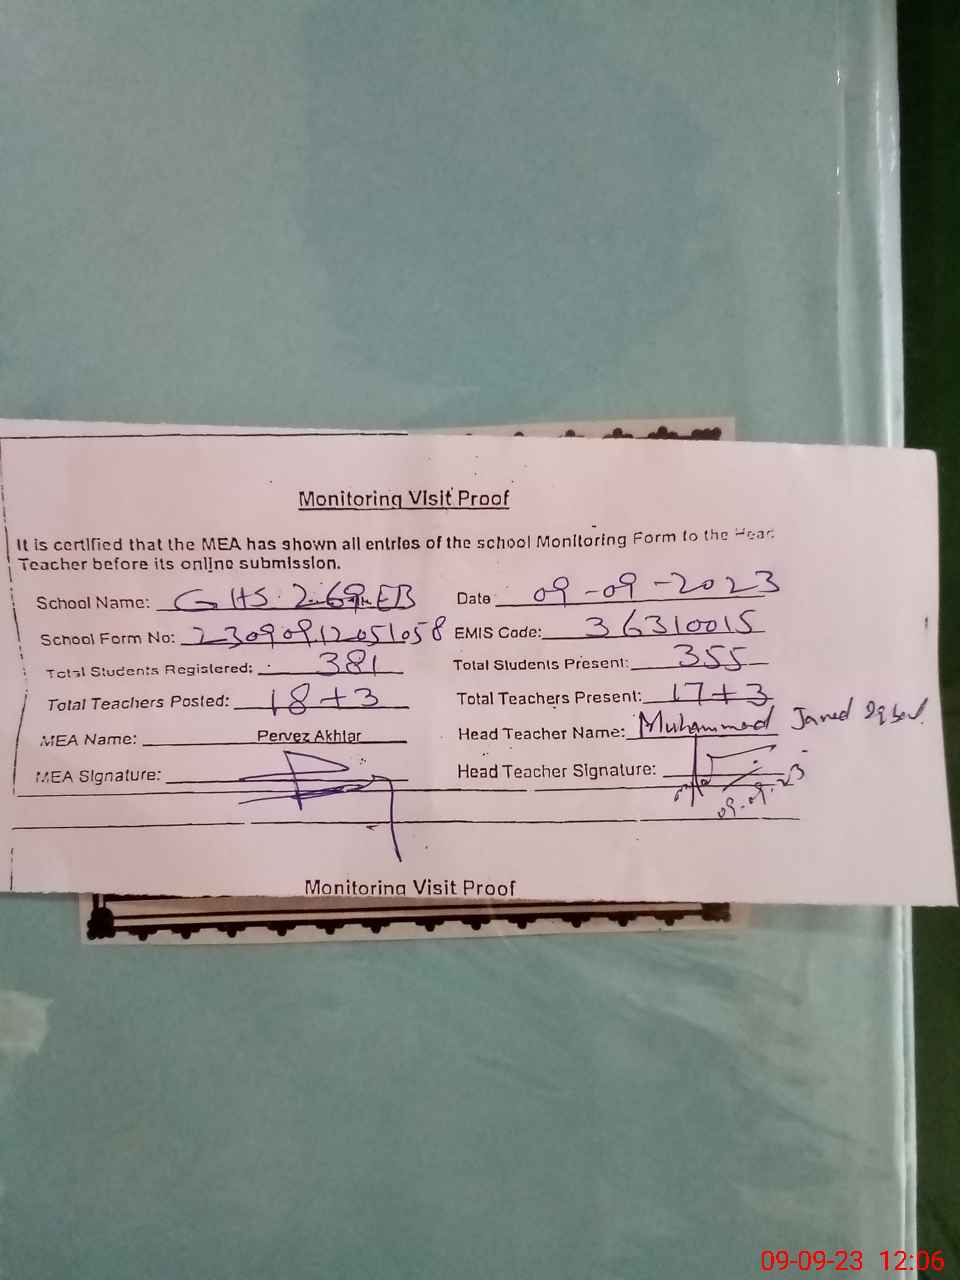 Monitoring Visit Proof
It is certified that the MEA has shown all entries of the school Monitoring Form to the Head
Teacher before its online submission.
School Name: GHS 269 EB Date 09-09-2023
School Form No: 23090912051058 EMIS Code: 36310015
Total Students Registered: 381 Total Students Present: 355
Total Teachers Posted: 18+3 Total Teachers Present: 17+3
MEA Name: Pervez Akhtar Head Teacher Name: Muhammad Javed Iqbal
MEA Signature: Head Teacher Signature:
09.09.23
Monitoring Visit Proof
09-09-23 12:06